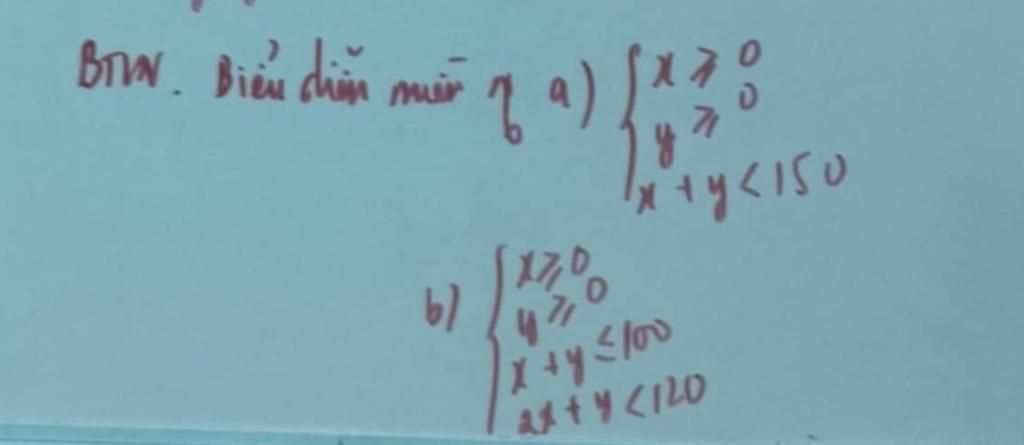 BTVN. Biểu diễn miền no a) { x ⩾ 0
y ⩾ 0
x + y < 150
b) { x ⩾ 0
y ⩾ 0
x + y ≤ 100
2x + y < 120